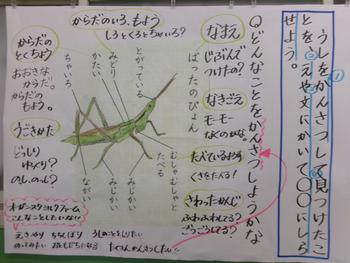 ①
うしをかんさつして見つけたこ
とを、えや文にかいて〇〇にしら
せよう。
Qどんなことをかんさつしようかな
なまえ
じぶんで
つけもの?
なきごえ
モーモー
なくのかな。
たべているようす
くさをたべる!
さわったかんじ
ふわふわしてる?
ごつごつしてる?
からだのいろ、もよう
しろとくろとちゃいろ?
ばったのぴょん
とがっている
みどり
かた
ちゃいろ
むしゃむしゃと
たべる
みじかい
みじかい
ながい
からだの
とくちょう
おおきな
からだ。
からだの
もよう。
うごきかた
どっしり
ゆっくり?
のし、のし?
こんなこともしたいな!!
えさやり ちちしぼり
うしのことをしりたい
たくさんかんさつしたい。